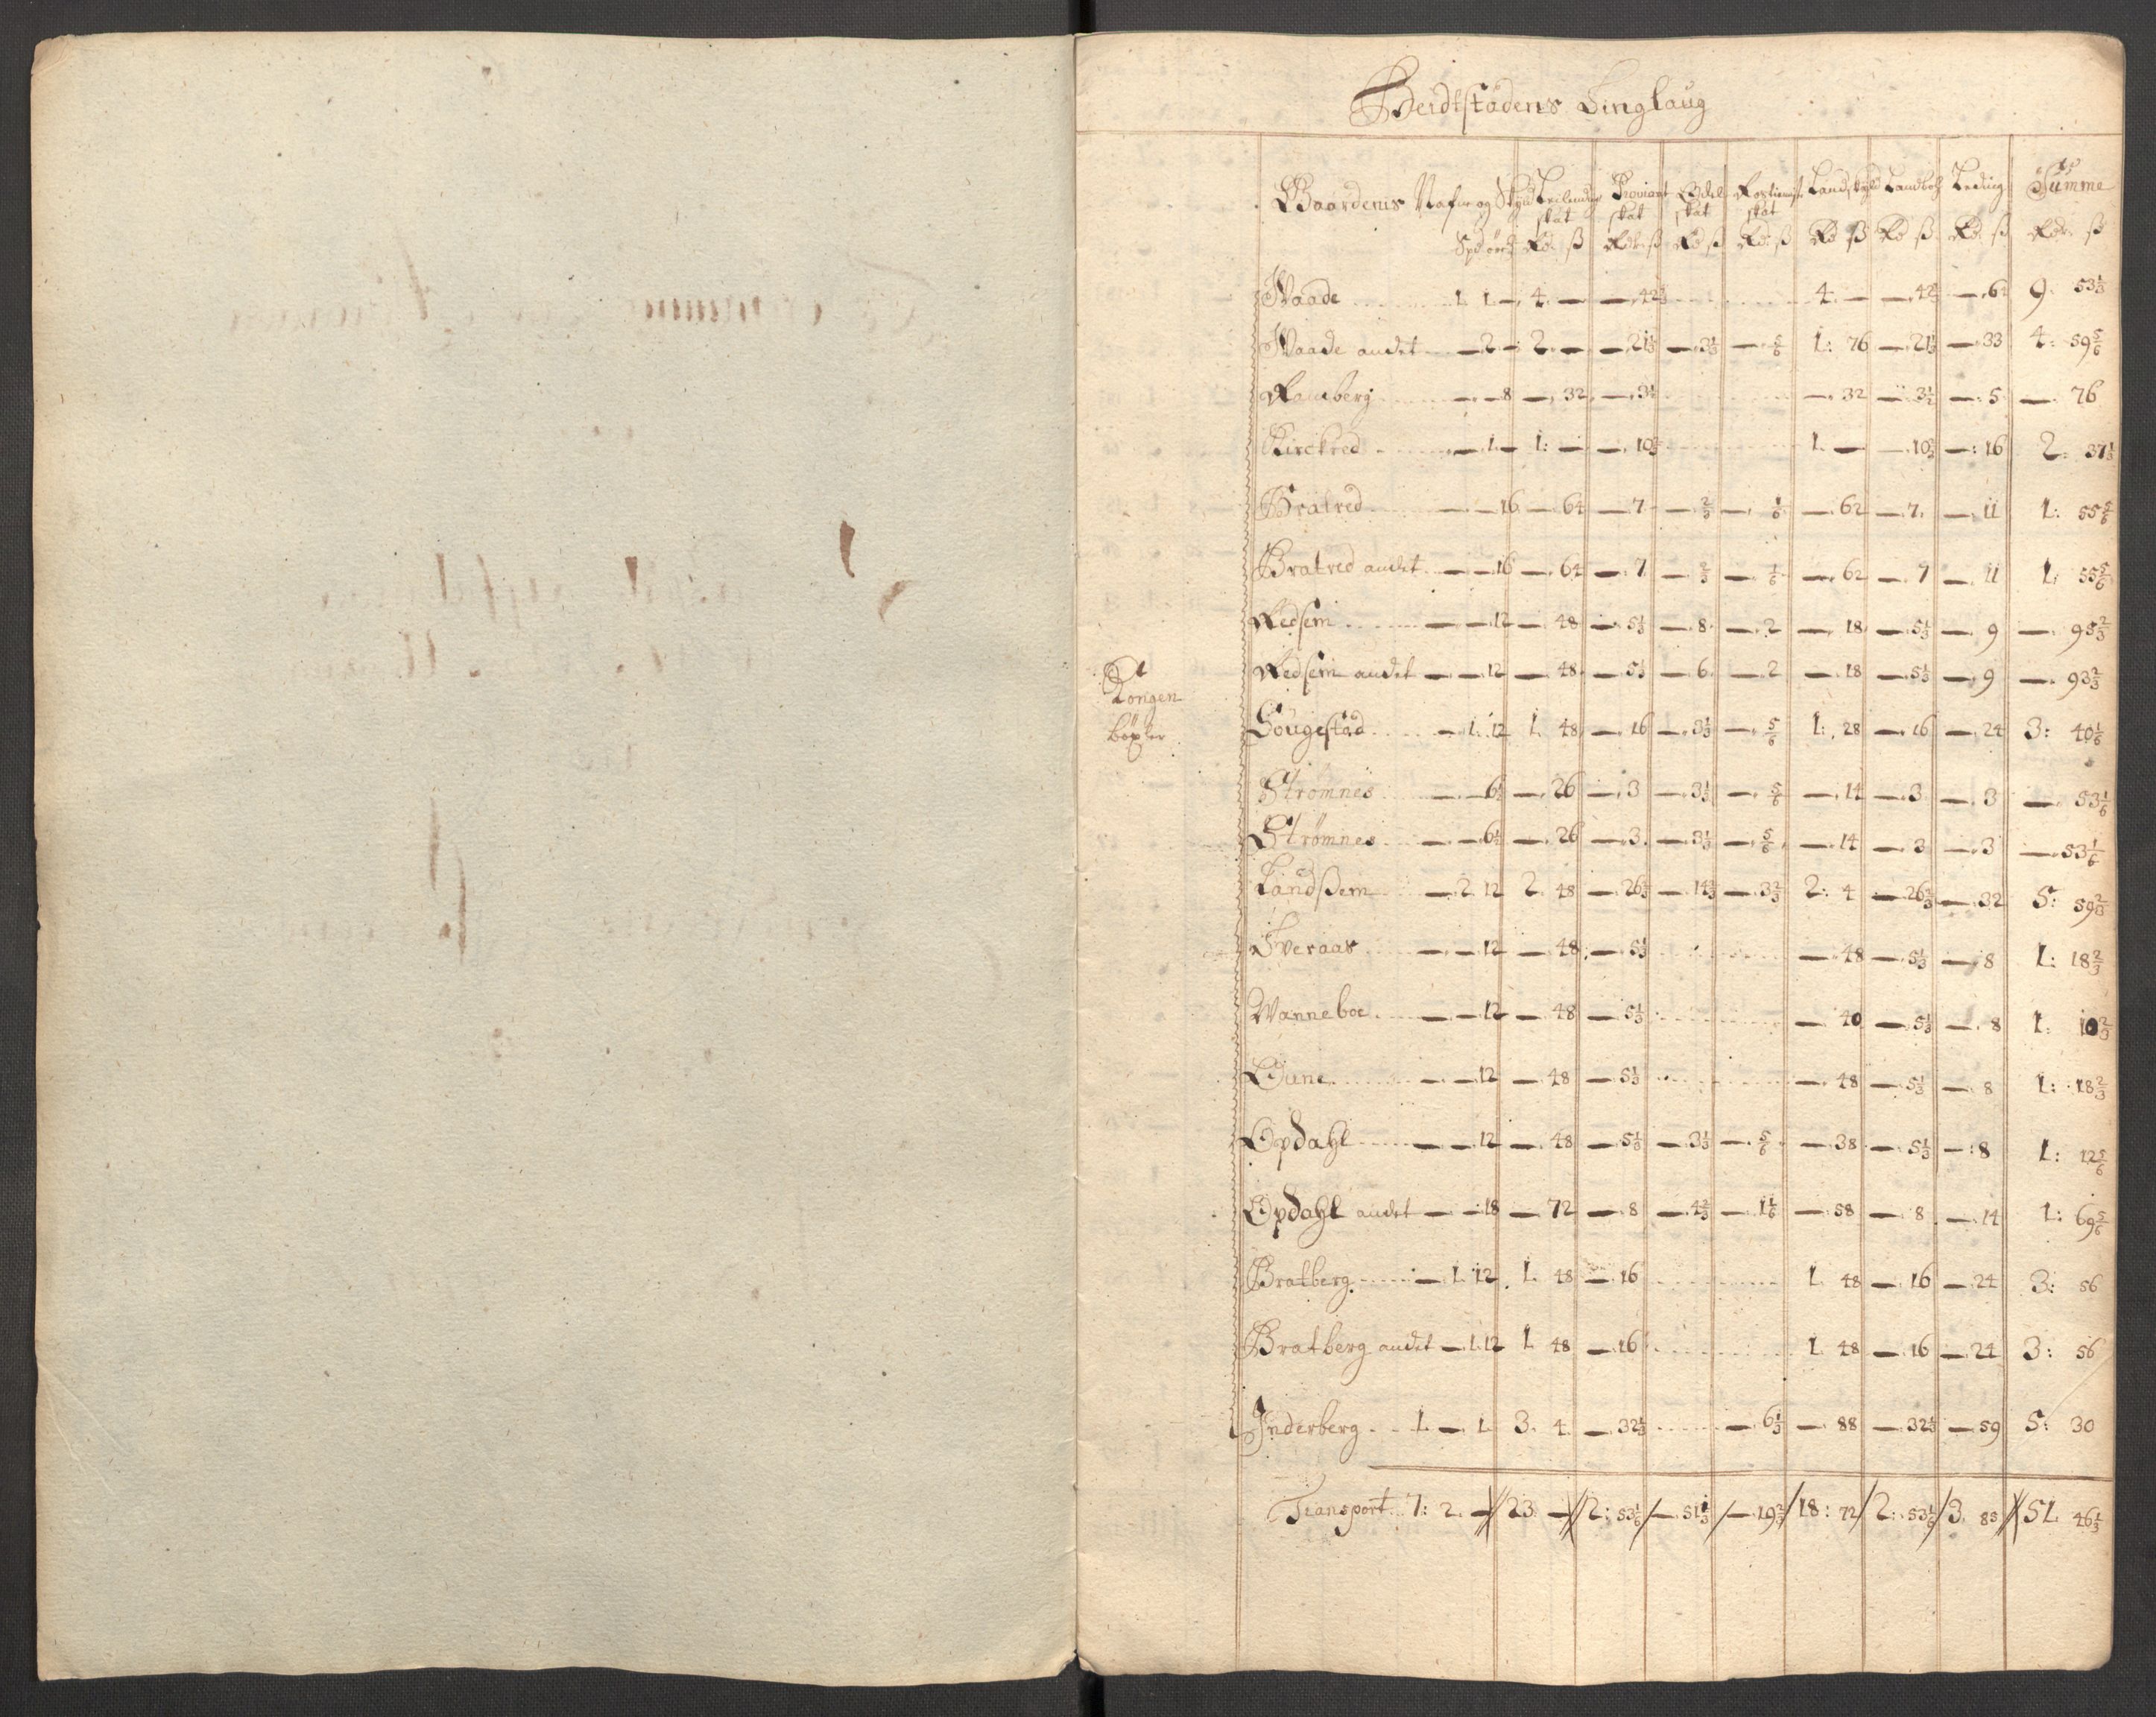 Beidtstadens Tinglaug
Gaardenis Nafne og Skyld Leilending skat Proviant skat Odel skat Rostienist skat Landskyld Landboh Leding Summe
Spd ører Rd ß Rdr ß Rd ß Rd ß Rd ß Rd ß Rd ß Rdr ß
Waade 1 1 — 4 — — 42⅔ 4 — — 42⅔ — 62 9 53⅓
Waade andet — 2 — 2 — — 21⅓ — 3⅓ — 5/6 1: 76 — 21⅓ — 33 4: 59 5/6
Ramberg — — 8 — 32 — 3½ — 32 — 3½ — 5 — 76
Kirckred — 1 — 1: — — 10⅔ 1 — — 10⅔ —: 16 2: 37⅓
Bratred — — 16 — 64 — 7 — ⅔ — 1/6 — 62 — 7 — 11 1: 55 5/6
Bratred andet — — 16 — 64 — 7 — ⅔ — 1/6 — 62 — 7 — 11 1: 55 5/6
Redsem — — 12 — 48 — 5⅓ — 8 — 2 — 18 — 5⅓ — 9 — 95⅔
Redsem andet — — 12 — 48 — 5⅓ — 6 — 2 — 18 — 5⅓ — 9 — 93⅔
Kongen
böxler
Sougestad — 1: 12 1 48 — 16 — 3⅓ — 5/6 1: 28 — 16 — 24 3: 40 1/6
Strømnes — — 6½ — 26 — 3 — 3⅓ — 5/6 — 14 — 3 — 3 — 53 1/6
Strømnes — — 6½ — 26 — 3 — 3⅓ — 5/6 — 14 — 3 — 3 — 53 1/6
Landßem — 2 12 2 48 — 26⅔ — 14⅔ — 3⅔ 2: 4 — 26⅔ — 32 5: 59⅔
Tveraas — — 12 — 48 — 5⅓ — 48 — 5⅓ — 8 1: 18⅔
Wanneboe — — 12 — 48 — 5⅓ — 40 — 5⅓ — 8 1: 10⅔
Oune — — 12 — 48 — 5⅓ — 48 — 5⅓ — 8 1: 18⅔
Opdahl — — 12 — 48 — 5⅓ — 3⅓ — 5/6 — 38 — 5⅓ —: 8 1: 12 5/6
Opdahl andet — — 18 — 72 — 8 — 4⅔ — 1 1/6 — 58 — 8 — 14 1: 69 5/6
Bratberg — 1 12 1 48 — 16 1 48 — 16 — 24 3: 56
Bratberg andet — 1 12 1 48 — 16 1 48 — 16 — 24 3: 56
Inderberg 1 — 1 3 4 — 32⅓ — 6⅓ — 88 — 32⅓ — 59 5: 30
Transport 7: 2 — 23 — 2: 53 1/6 — 51⅓ — 19⅔ 18: 72 2: 53 1/6 3 85 51 46⅓